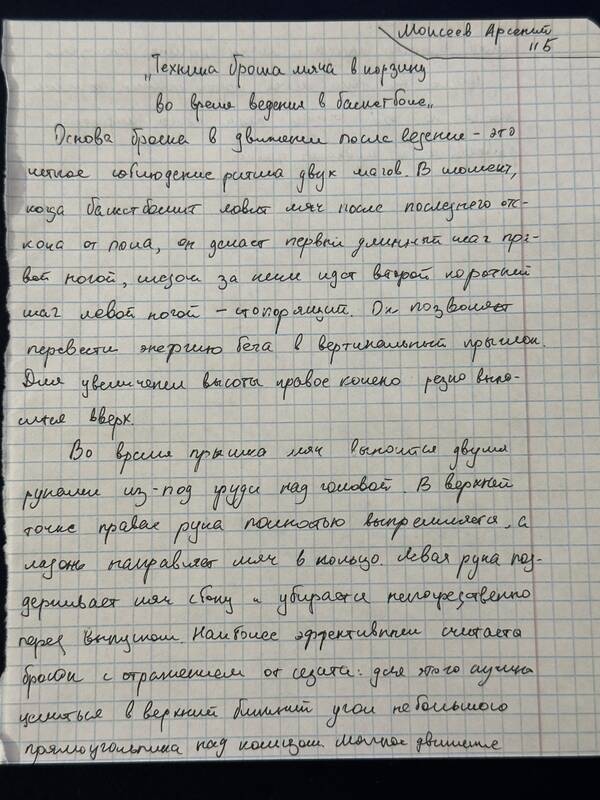 Моисеев Арсений
11Б
„Техника броска мяча в корзину
во время ведения в баскетболе„
Основа броска в движении после ведения – это
четкое соблюдение ритма двух шагов. В момент,
когда баскетболист ловит мяч после последнего отс-
кока от пола, он делает первый длинный шаг пра-
вой ногой, следом за ним идет второй короткий
шаг левой ногой – стопорящий. Он позволяет
перевести энергию бега в вертикальный прыжок.
Для увеличения высоты правое колено резко выно-
сится вверх.
Во время прыжка мяч выносится двумя
руками из-под груди над головой. В верхней
точке правая рука полностью выпрямляется, а
ладонь направляет мяч в кольцо. Левая рука под-
держивает мяч сбоку и убирается непосредственно
перед выпуском. Наиболее эффективным считается
бросок с отражением от щита: для этого лучше
целиться в верхний ближний угол небольшого
прямоугольника над кольцом. Мягкое движение